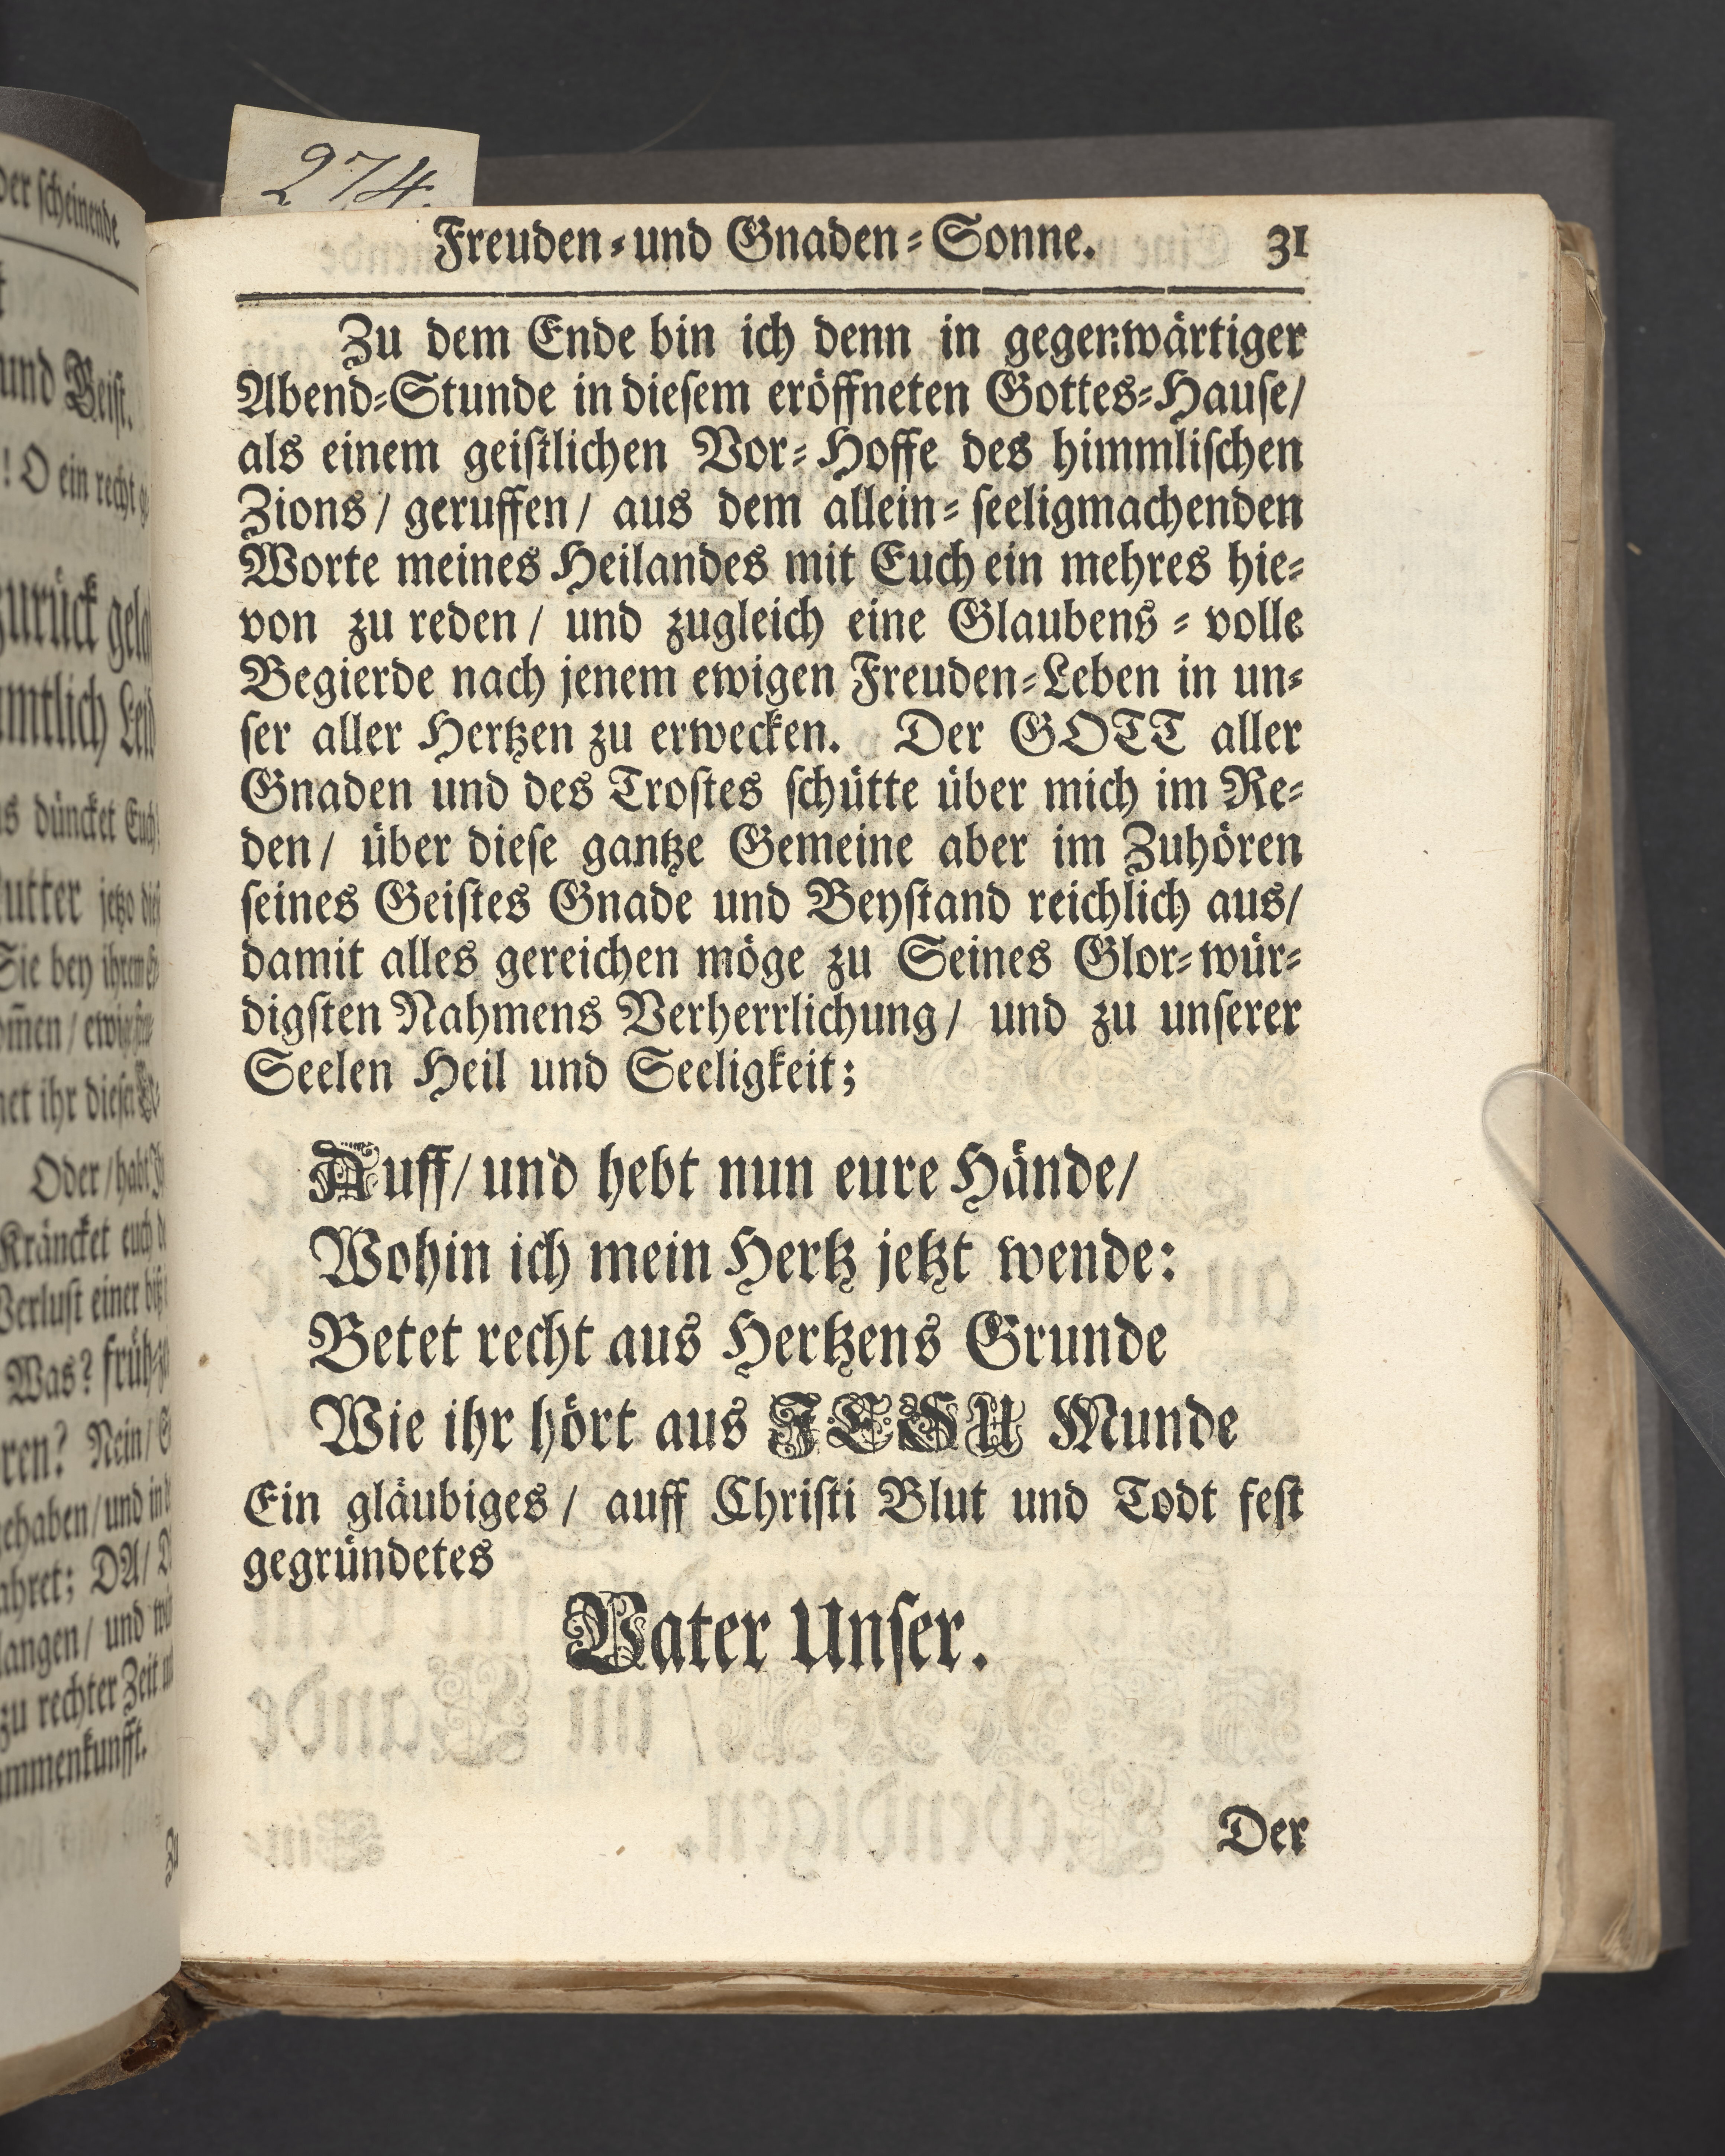 274.
Freuden-und Gnaden-Sonne. 31
Zu dem Ende bin ich denn in gegenwärtiger
Abend-Stunde in diesem eröffneten Gottes-Hause/
als einem geistlichen Vor-Hoffe des himmlischen
Zions/ geruffen/ aus dem allein-seeligmachenden
Worte meines Heilandes mit Euch ein mehres hie-
von zu reden/ und zugleich eine Glaubens-volle
Begierde nach jenem ewigen Freuden-Leben in un-
ser aller Hertzen zu erwecken. Der GOTT aller
Gnaden und des Trostes schütte über mich im Re-
den/ über diese gantze Gemeine aber im Zuhören
seines Geistes Gnade und Beystand reichlich aus/
damit alles gereichen möge zu Seines Glor-wür-
digsten Nahmens Verherrlichung/ und zu unserer
Seelen Heil und Seeligkeit;
Auff/ und hebt nun eure Hände/
Wohin ich mein Hertz jetzt wende:
Betet recht aus Hertzens Grunde
Wie ihr hört aus JESU Munde
Ein gläubiges/ auff Christi Blut und Todt fest
gegründetes
Vater Unser.
Der
der scheinende
und Geist.
! O ein recht
zurück
düncket Euch
jetzo
Sie bey ihrem
ihr dieser
Oder/ habt
Kräncket euch
Verlust einer
Was? früh-
ren? Nein/
gehaben/ und in
ahret; DA/
langen/ und
zu rechter Zeit
mmenkunfft.